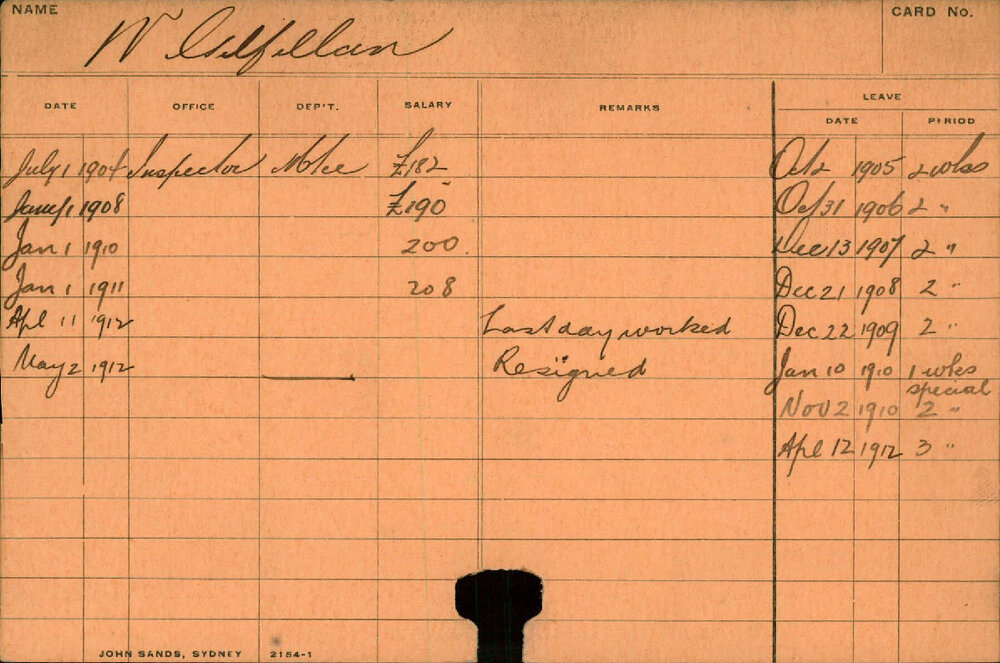 NAME
CARD No.
W Gilfillan
LEAVE
DATE OFFICE DEP'T. SALARY REMARKS
DATE PERIOD
July 1 1904 Inspector Mkee £182 Oct 2 1905 2 wks
Jany 1 1908 £190 Oct 31 1906 2 "
Jan 1 1910 200 Dec 13 1907 2 "
Jan 1 1911 208 Dec 21 1908 2 "
Apl 11 1912 Last day worked Dec 22 1909 2 "
May 2 1912 Resigned Jan 10 1910 1 wks
special
Nov 2 1910 2 "
Apl 12 1912 3 "
JOHN SANDS, SYDNEY 2154-1